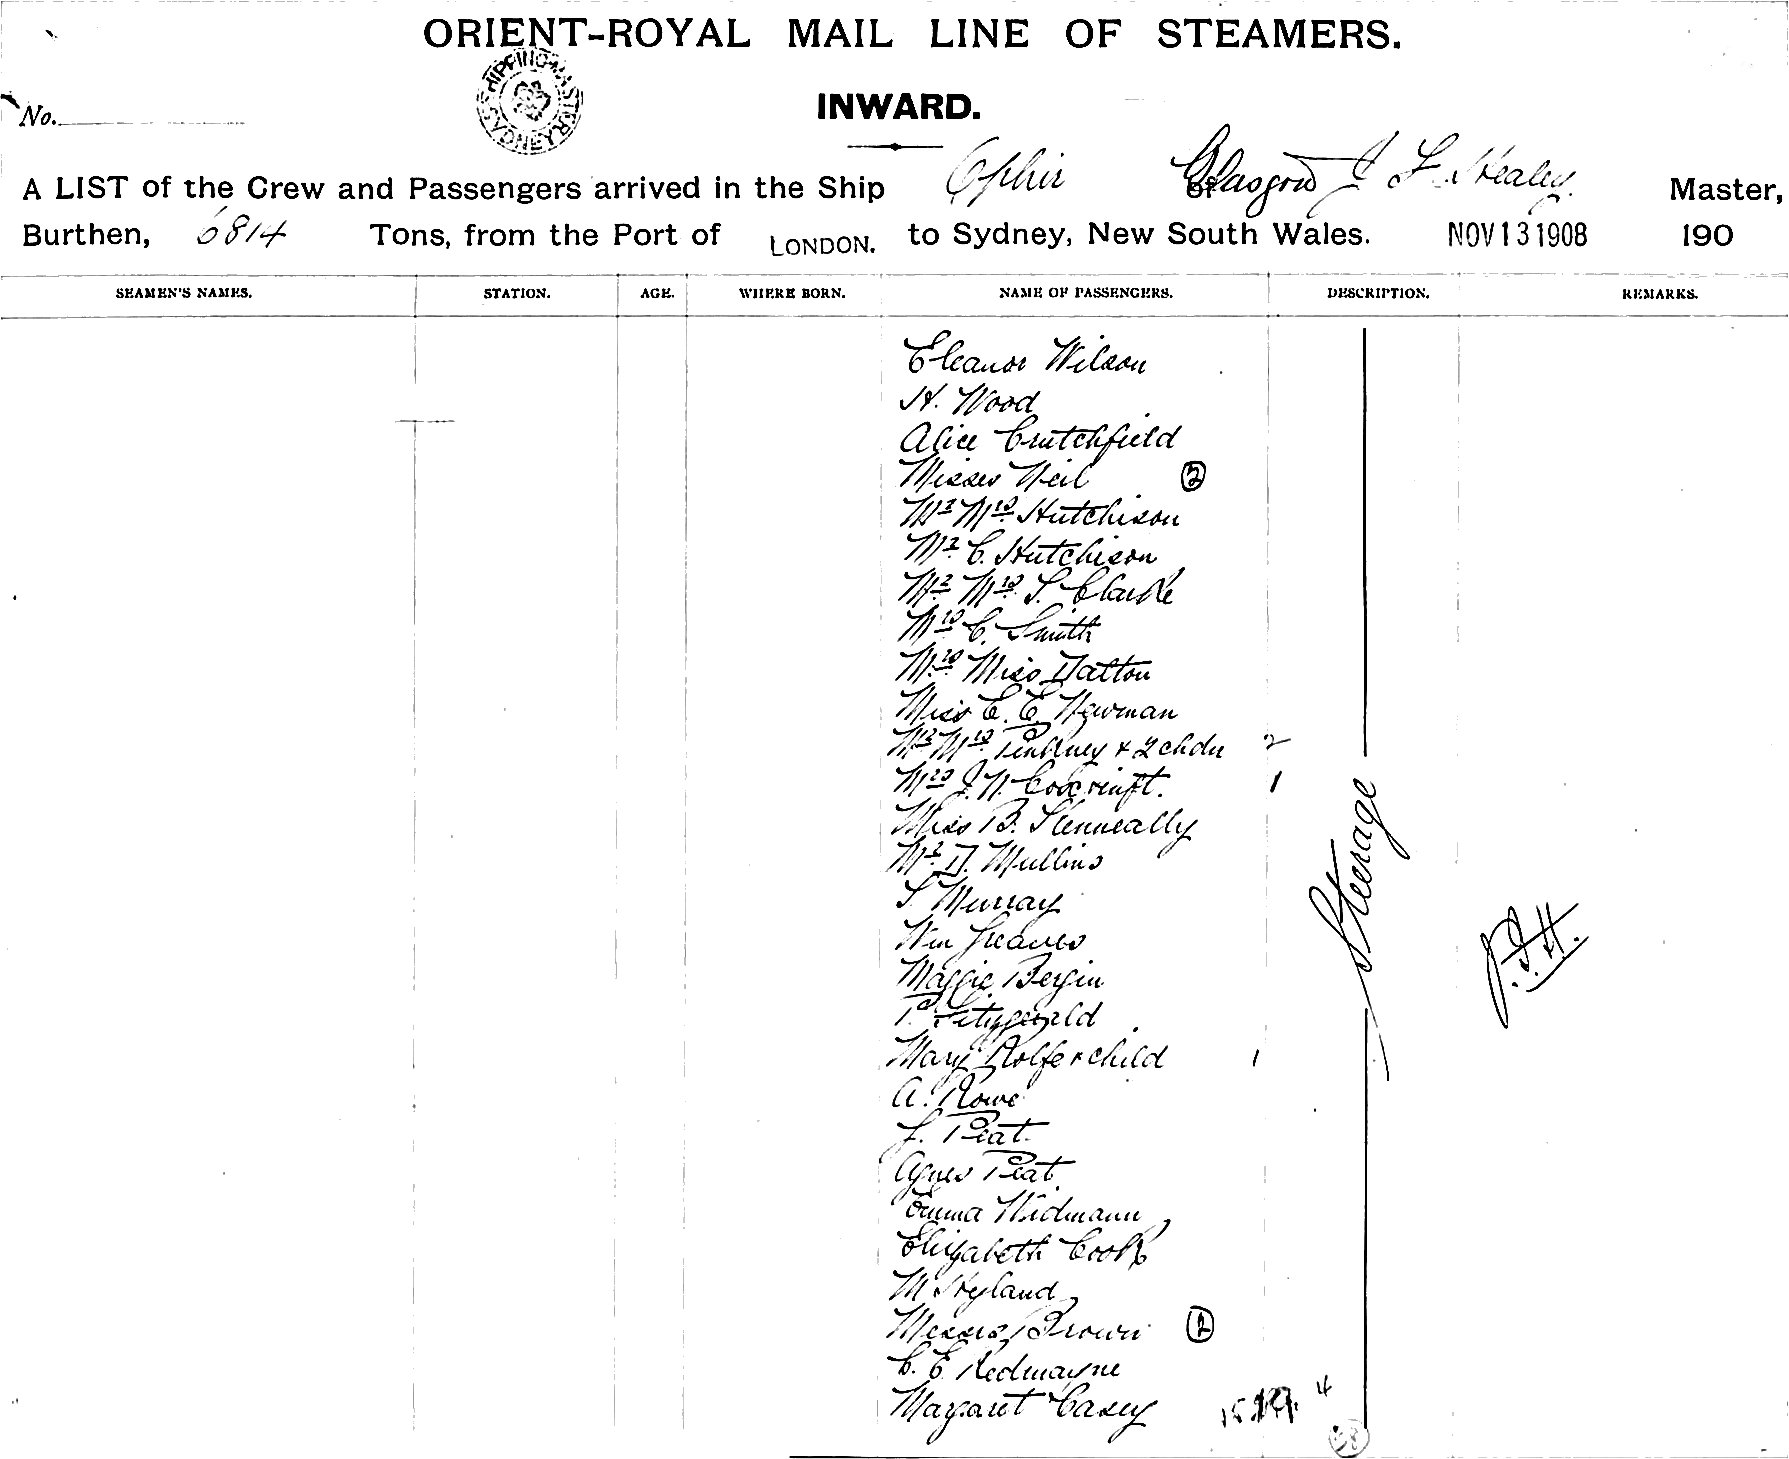 ORIENT-ROYAL MAIL LINE OF STEAMERS.
SHIPPING MASTER SYDNEY
INWARD.
No.
A LIST of the Crew and Passengers arrived in the Ship Ophir of Glasgow J F Healey Master,
Burthen, 6814 Tons, from the Port of LONDON. to Sydney, New South Wales. NOV 13 1908 190
SEAMEN'S NAMES. STATION. AGE. WHERE BORN. NAME OF PASSENGERS. DESCRIPTION. REMARKS.
Eleanor Wilson
H. Wood
Alice Crutchfield
Misses Neil 2
Mr Mrs Hutchison
Mr C. Hutchison
Mr Mrs S. Clarke
Mrs C. Smith
Mrs Miss Dalton
Miss E. E. Newman
Mr Mrs Pinkney & 2 chdn 2
Mrs J. N. 1
Miss B.
Mr D. Mullins
S Murray
Wm Greaves
Maggie Bergin
P. Fitzgerald
Mary Rolfe & child 1
A. Rowe
J. Peat.
Agnes Peat.
Emma Widmann
Elizabeth Cook
M Hyland
Messrs Brown 2
C. E. Redmayne
Margaret Casey 15 4
Steerage
J.F.H.